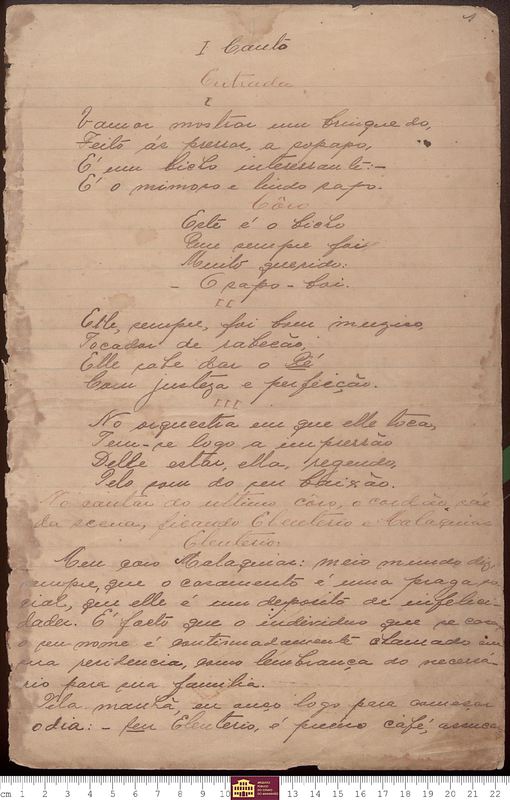 1
I Canto
Entrada
I
Vamos mostrar um brinquedo,
Feito ás pressas, a sopapo,
É um bicho interessante:—
É o mimoso e lindo sapo.
Côro
Este é o bicho
Que sempre foi
Muito querido:
— O sapo-boi.
II
Elle, sempre, foi bom musico,
Tocador de rabecão,
Elle sabe dar o Ré
Com justeza e perfeição.
III
No orquestra em que elle toca,
Tem-se logo a impressão
Delle estar, ella, regendo,
Pelo som do seu baixão.
No cantar do ultimo côro, o cordão sáe
da scena, ficando Eleuterio e Malaquias
Eleuterio:
Meu caro Malaquias: meio mundo diz,
sempre, que o casamento é uma praga so-
cial, que elle é um deposito de infelici-
dades. É facto que o individuo que se casa
o seu nome é continuadamente chamado em
sua residencia, como lembrança do necessa-
rio para sua familia.
Pela manhã, eu ouço logo para começar
o dia: — Seu Eleuterio, é preciso café, assucar
cm 1 2 3 4 5 6 7 8 9 10 13 14 15 16 17 18 19 20 21 22
ARQUIVO
PÚBLICO
DO ESTADO
DO MARANHÃO